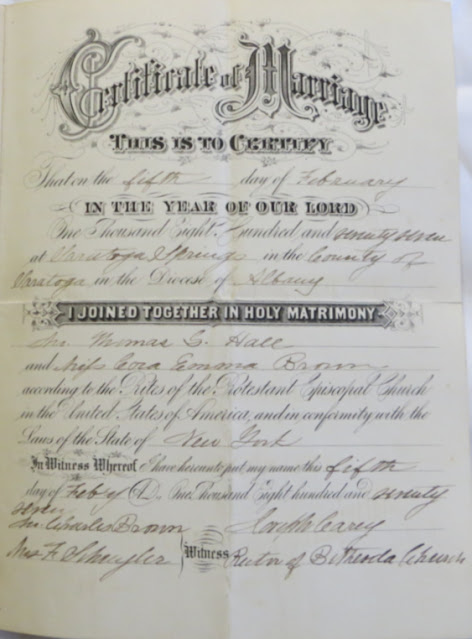 Certificate of Marriage
THIS IS TO CERTIFY
That on the fifth day of February
IN THE YEAR OF OUR LORD
One Thousand Eight Hundred and seventy seven
at Saratoga Springs in the County of
Saratoga in the Diocese of Albany
I JOINED TOGETHER IN HOLY MATRIMONY
Mr. Thomas G. Hall
and Miss Cora Emma Brown
according to the Rites of the Protestant Episcopal Church
in the United States of America, and in conformity with the
Laws of the State of New York
In Witness Whereof I have hereunto put my name this fifth
day of Feby A.D. One Thousand Eight hundred and seventy
seven
Charles Brown Joseph Carey
F. Schuyler Witness Rector of Bethesda Church